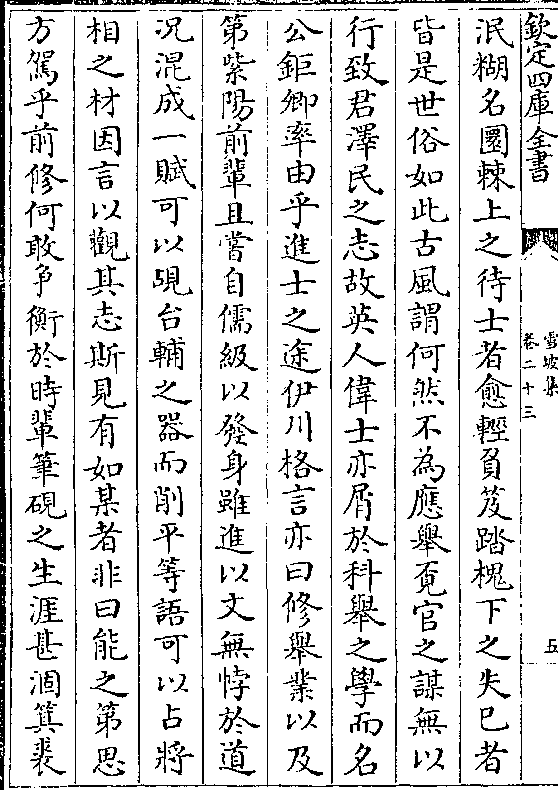 欽定四庫全書
雪坡集
卷二十三
五
泯糊名圜棘上之待士者愈輕負笈踏槐下之失已者
皆是世俗如此古風謂何然不為應舉覔官之謀無以
行致君澤民之志故英人偉士亦屑於科舉之學而名
公鉅卿率由乎進士之途伊川格言亦曰修舉業以及
第紫陽前輩且嘗自儒級以發身雖進以文無悖於道
况混成一賦可以覘台輔之器而削平等語可以占將
相之材因言以觀其志斯見有如某者非曰能之第思
方駕乎前修何敢争衡於時輩筆硯之生涯甚涸箕裘